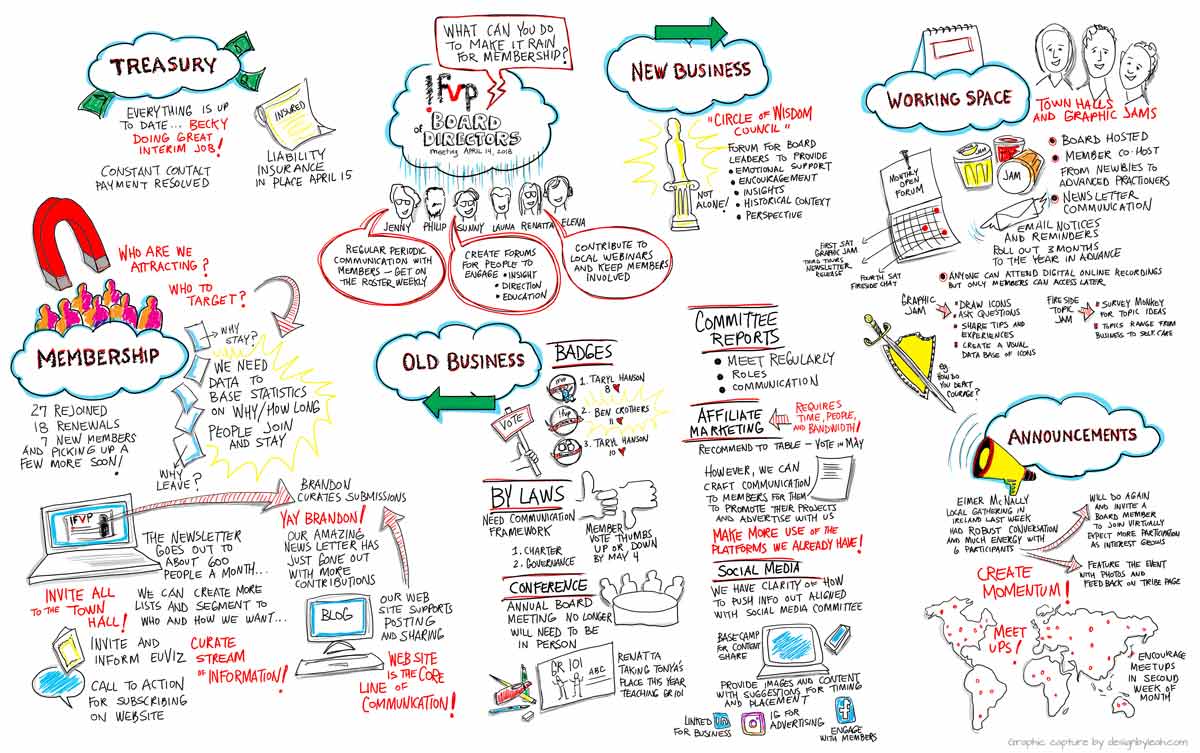 TREASURY
EVERYTHING IS UP
TO DATE... BECKY
DOING GREAT
INTERIM JOB!
CONSTANT CONTACT
PAYMENT RESOLVED
INSURED
LIABILITY
INSURANCE
IN PLACE APRIL 15
WHAT CAN YOU DO
TO MAKE IT RAIN
FOR MEMBERSHIP?
IFVP
of BOARD
DIRECTORS
meeting APRIL 14, 2018
JENNY
PHILIP
SUNNY
LAUNA
RENATTA
ELENA
REGULAR PERIODIC
COMMUNICATION WITH
MEMBERS – GET ON
THE ROSTER WEEKLY
CREATE FORUMS
FOR PEOPLE TO
ENGAGE • INSIGHT
• DIRECTION
• EDUCATION
CONTRIBUTE TO
LOCAL WEBINARS
AND KEEP MEMBERS
INVOLVED
NEW BUSINESS
"CIRCLE OF WISDOM
COUNCIL"
FORUM FOR BOARD
LEADERS TO PROVIDE
• EMOTIONAL SUPPORT
• ENCOURAGEMENT
• INSIGHTS
• HISTORICAL CONTEXT
• PERSPECTIVE
NOT
ALONE!
WORKING SPACE
TOWN HALLS
AND GRAPHIC JAMS
• BOARD HOSTED
• MEMBER CO-HOST
FROM NEWBIES TO
ADVANCED PRACTIONERS
• NEWSLETTER
COMMUNICATION
JAM
EMAIL NOTICES
AND REMINDERS
ROLL OUT 3 MONTHS
TO THE YEAR IN ADVANCE
MONTHLY
OPEN
FORUM
FIRST SAT.
GRAPHIC JAM
THIRD THURS
NEWSLETTER
RELEASE
FOURTH SAT.
FIRESIDE CHAT
• ANYONE CAN ATTEND DIGITAL ONLINE RECORDINGS
BUT ONLY MEMBERS CAN ACCESS LATER
GRAPHIC
JAM
• DRAW ICONS
• ASK QUESTIONS
• SHARE TIPS AND
EXPERIENCES
• CREATE A VISUAL
DATA BASE OF ICONS
FIRESIDE
TOPIC
JAM
• SURVEY MONKEY
FOR TOPIC IDEAS
• TOPICS RANGE FROM
BUSINESS TO SELF CARE
eg.
HOW DO
YOU DEPICT
COURAGE?
WHO ARE WE
ATTRACTING?
WHO TO
TARGET?
MEMBERSHIP
27 REJOINED
18 RENEWALS
7 NEW MEMBERS
AND PICKING UP A
FEW MORE SOON!
WHY
STAY?
WE NEED
DATA TO
BASE STATISTICS
ON WHY/HOW LONG
PEOPLE JOIN
AND STAY
WHY
LEAVE?
IFVP
BRANDON
CURATES SUBMISSIONS
YAY BRANDON!
OUR AMAZING
NEWS LETTER HAS
JUST GONE OUT
WITH MORE
CONTRIBUTIONS
THE NEWSLETTER
GOES OUT TO
ABOUT 600
PEOPLE A MONTH...
INVITE ALL
TO THE TOWN
HALL!
WE CAN CREATE MORE
LISTS AND SEGMENT TO
WHO AND HOW WE WANT...
INVITE AND
INFORM EUVIZ
CURATE
STREAM
OF INFORMATION!
CALL TO ACTION
FOR SUBSCRIBING
ON WEBSITE
BLOG
OUR WEB
SITE SUPPORTS
POSTING
AND SHARING
WEB SITE
IS THE CORE
LINE OF
COMMUNICATION!
OLD BUSINESS
VOTE
BADGES
1. TARYL HANSON
8
IFVP
2. BEN CROTHERS
11
3. TARYL HANSON
10
BY LAWS
NEED COMMUNICATION
FRAMEWORK
1. CHARTER
2. GOVERNANCE
MEMBER
VOTE THUMBS
UP OR DOWN
BY MAY 4
CONFERENCE
ANNUAL BOARD
MEETING NO LONGER
WILL NEED TO BE
IN PERSON
GR 101
ABC
RENATTA
TAKING TONYA'S
PLACE THIS YEAR
TEACHING GR101
COMMITTEE
REPORTS
• MEET REGULARLY
• ROLES
• COMMUNICATION
AFFILIATE
MARKETING
REQUIRES
TIME, PEOPLE,
AND BANDWIDTH!
RECOMMEND TO TABLE – VOTE IN MAY
HOWEVER, WE CAN
CRAFT COMMUNICATION
TO MEMBERS FOR THEM
TO PROMOTE THEIR PROJECTS
AND ADVERTISE WITH US
MAKE MORE USE OF THE
PLATFORMS WE ALREADY HAVE!
SOCIAL MEDIA
WE HAVE CLARITY OF HOW
TO PUSH INFO OUT ALIGNED
WITH SOCIAL MEDIA COMMITTEE
BASECAMP
FOR CONTENT
SHARE
PROVIDE IMAGES AND CONTENT
WITH SUGGESTIONS FOR TIMING
AND PLACEMENT
LINKED in
FOR BUSINESS
IG FOR
ADVERTISING
f
ENGAGE
WITH MEMBERS
ANNOUNCEMENTS
EIMER MCNALLY
LOCAL GATHERING IN
IRELAND LAST WEEK
HAD ROBUST CONVERSATION
AND MUCH ENERGY WITH
6 PARTICIPANTS
WILL DO AGAIN
AND INVITE A
BOARD MEMBER
TO JOIN VIRTUALLY
EXPECT MORE PARTICIPATION
AS INTEREST GROWS
• FEATURE THE EVENT
WITH PHOTOS AND
FEEDBACK ON TRIBE PAGE
CREATE
MOMENTUM!
MEET
UPS!
• ENCOURAGE
MEETUPS
IN SECOND
WEEK OF
MONTH
Graphic capture by designbyleah.com